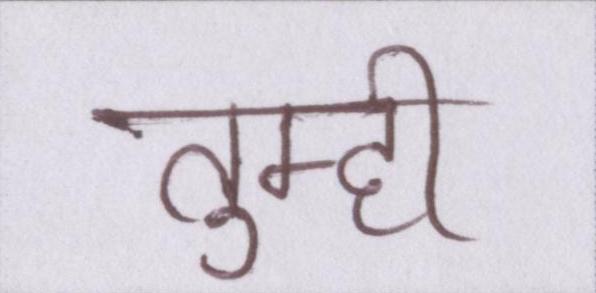 तुम्ही